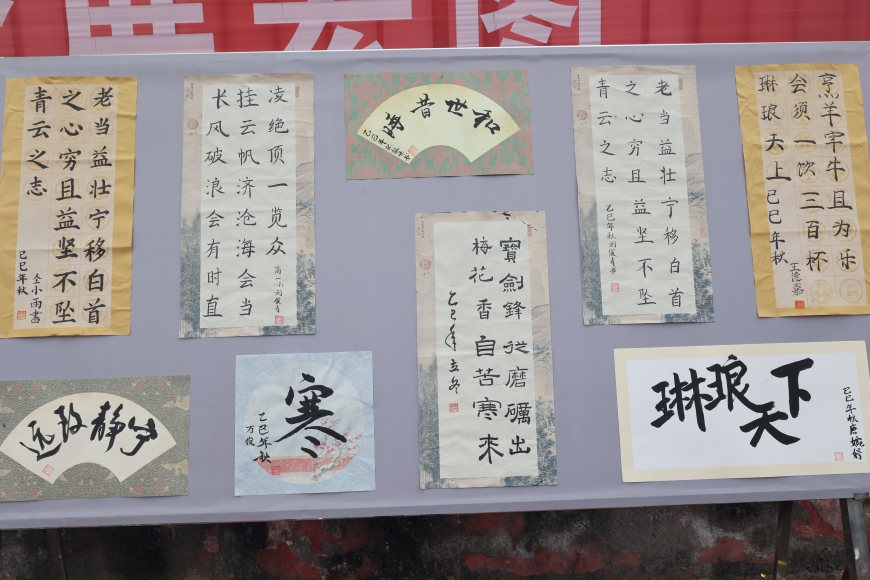 老当益壮宁移白首
之心穷且益坚不坠
青云之志
乙巳年秋
仝小雨書
长风破浪会有时直
挂云帆济沧海会当
凌绝顶一览众
和世昔
老当益壮宁移白首
之心穷且益坚不坠
青云之志
乙巳年秋刘俊青书
烹羊宰牛且为乐
会须一饮三百杯
琳琅天上乙巳年秋
宁静致远
寒
乙巳年秋
万俊
寶劍鋒從磨礪出
梅花香自苦寒來
乙巳年立冬
琳琅天下
乙巳年秋